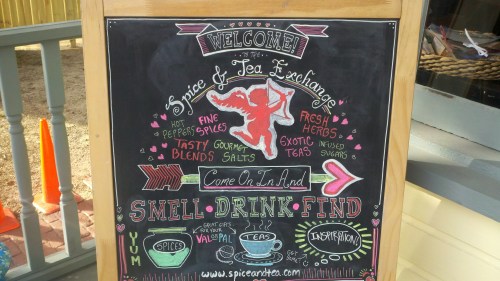 WELCOME!
TO THE
Spice & Tea Exchange
HOT PEPPERS
FINE SPICES
FRESH HERBS
TASTY BLENDS
GOURMET SALTS
EXOTIC TEAS
INFUSED SUGARS
Come On In And
SMELL • DRINK • FIND
YUM
SPICES
GREAT GIFTS
FOR YOUR
VAL OR PAL
TEAS
GET SOME
INSPIRATION!
www.spiceandtea.com